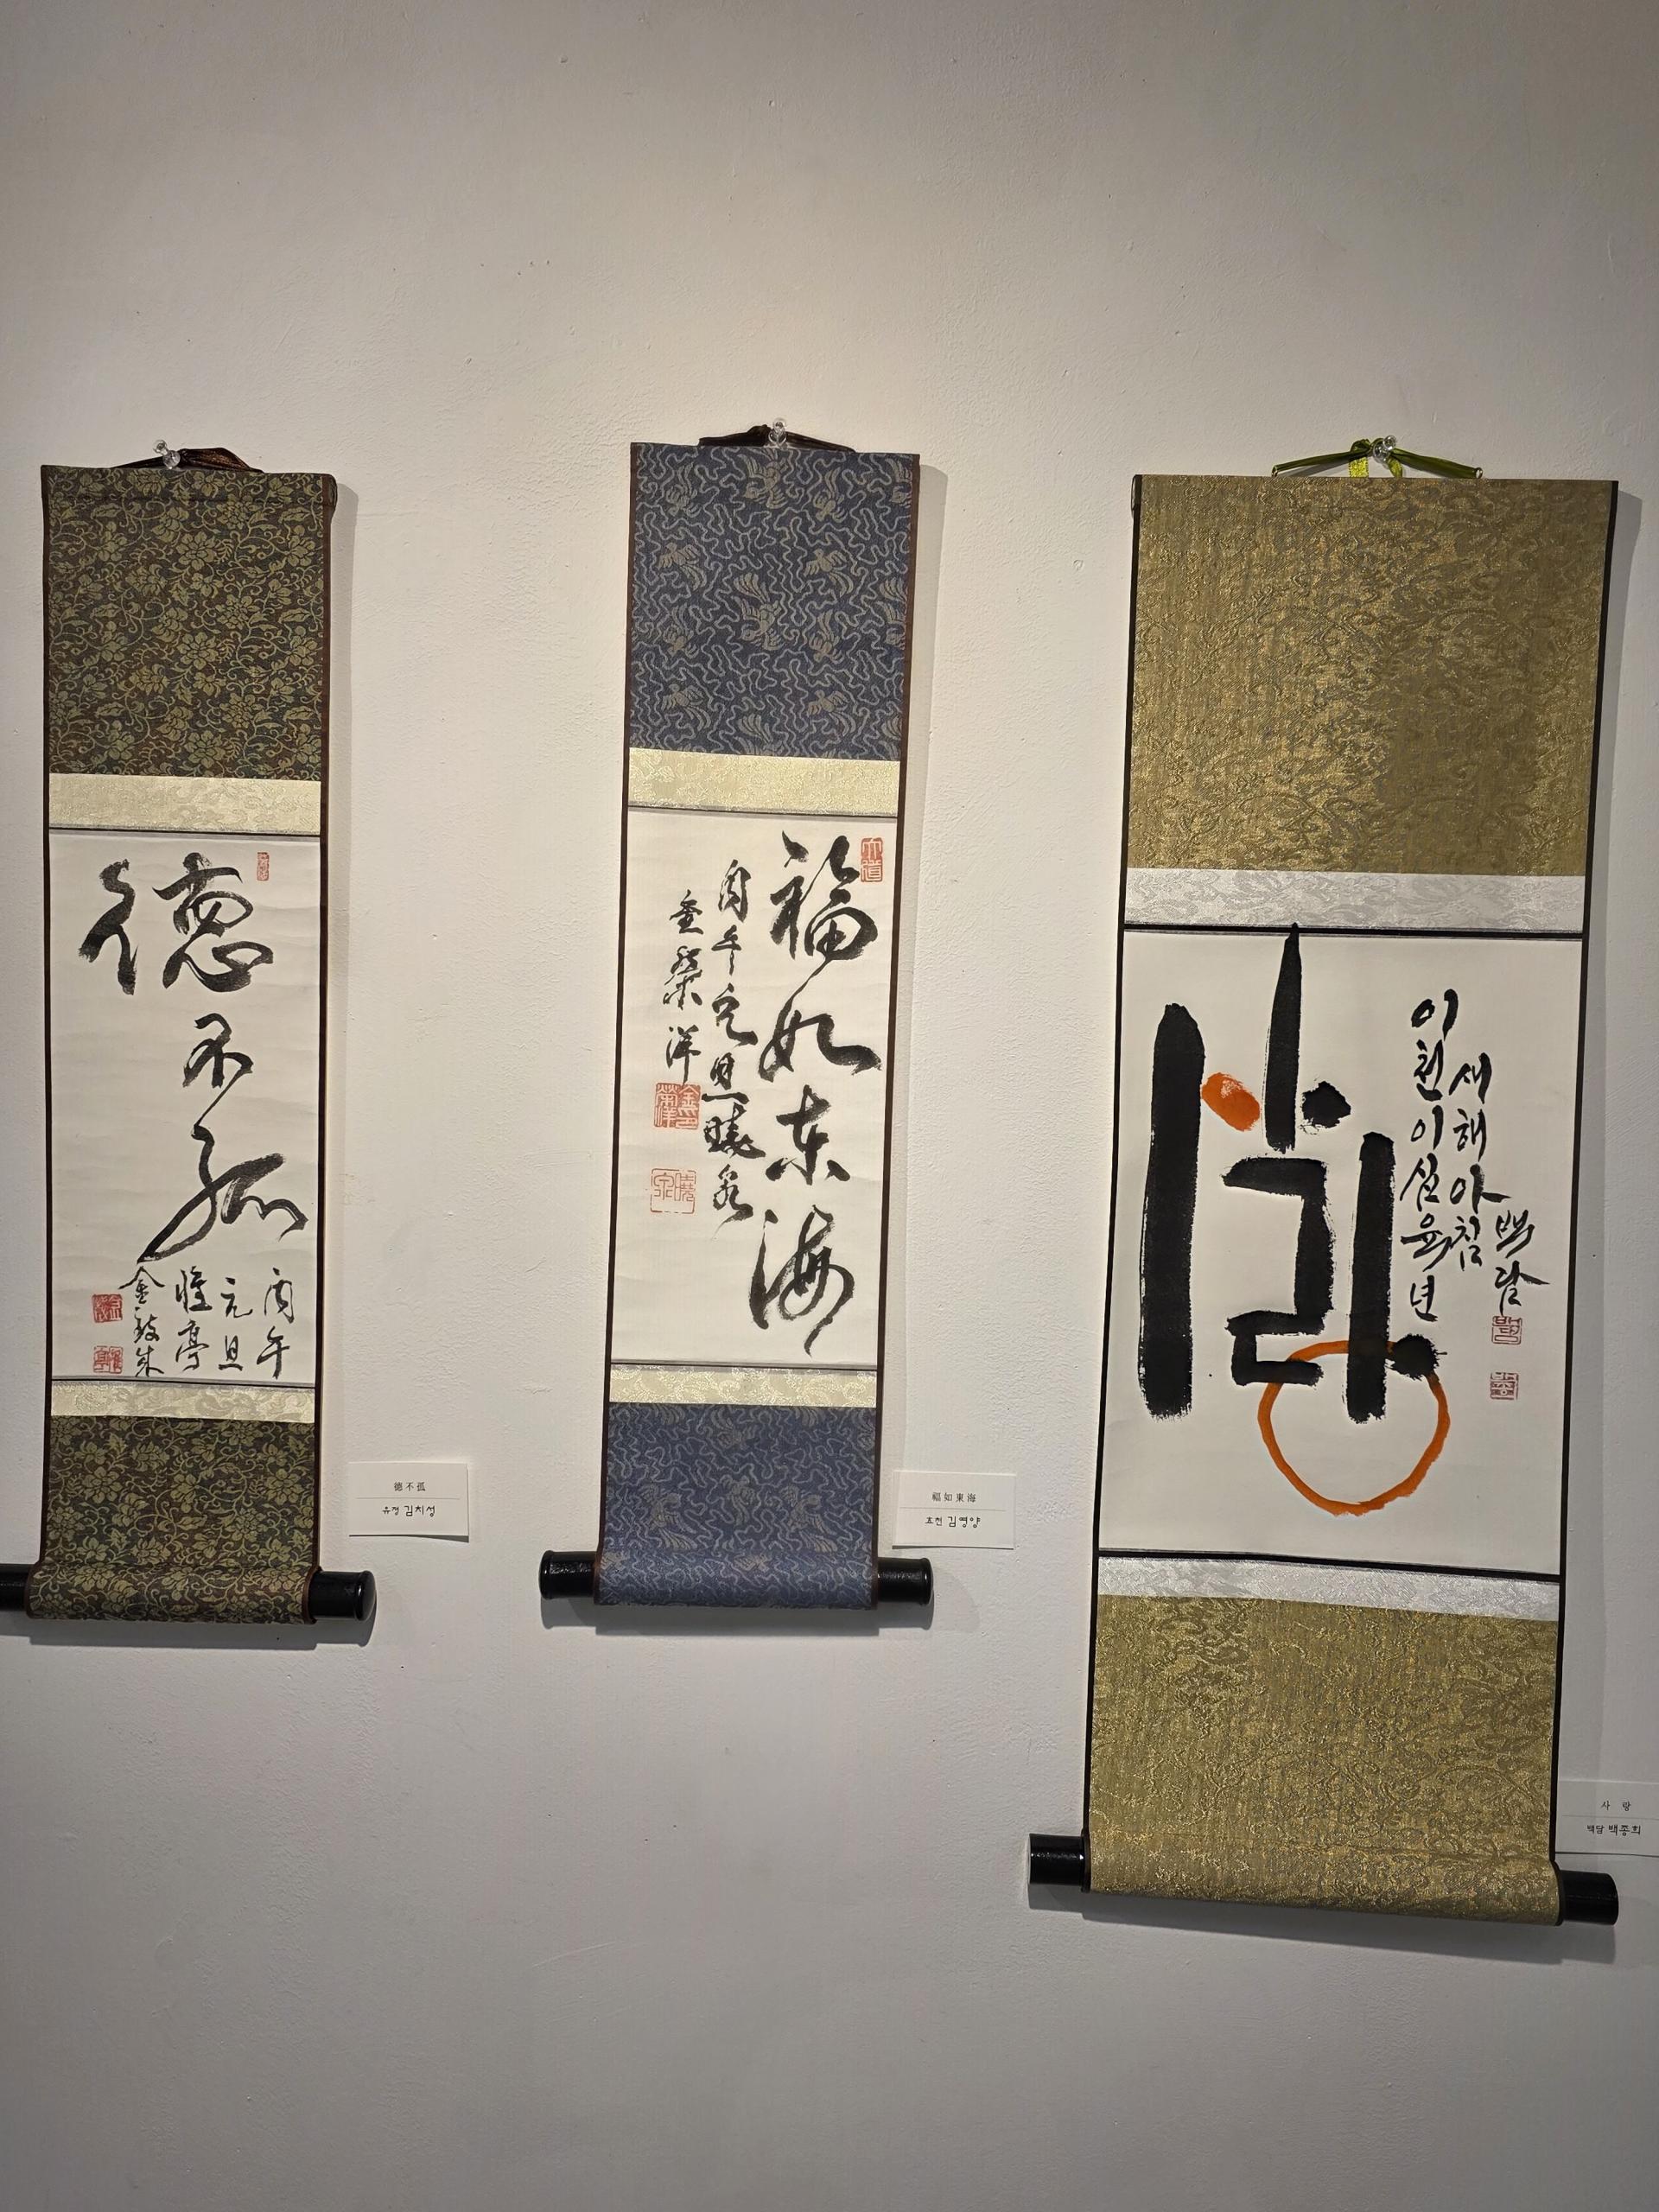 德不孤
丙午
元旦
惟亭
金致成
德不孤
유정 김치성
福如東海
丙午元旦曉泉
金榮洋
福如東海
효천 김영양
사랑
이천이십육년
새해아침
백달
사랑
백달 백종희